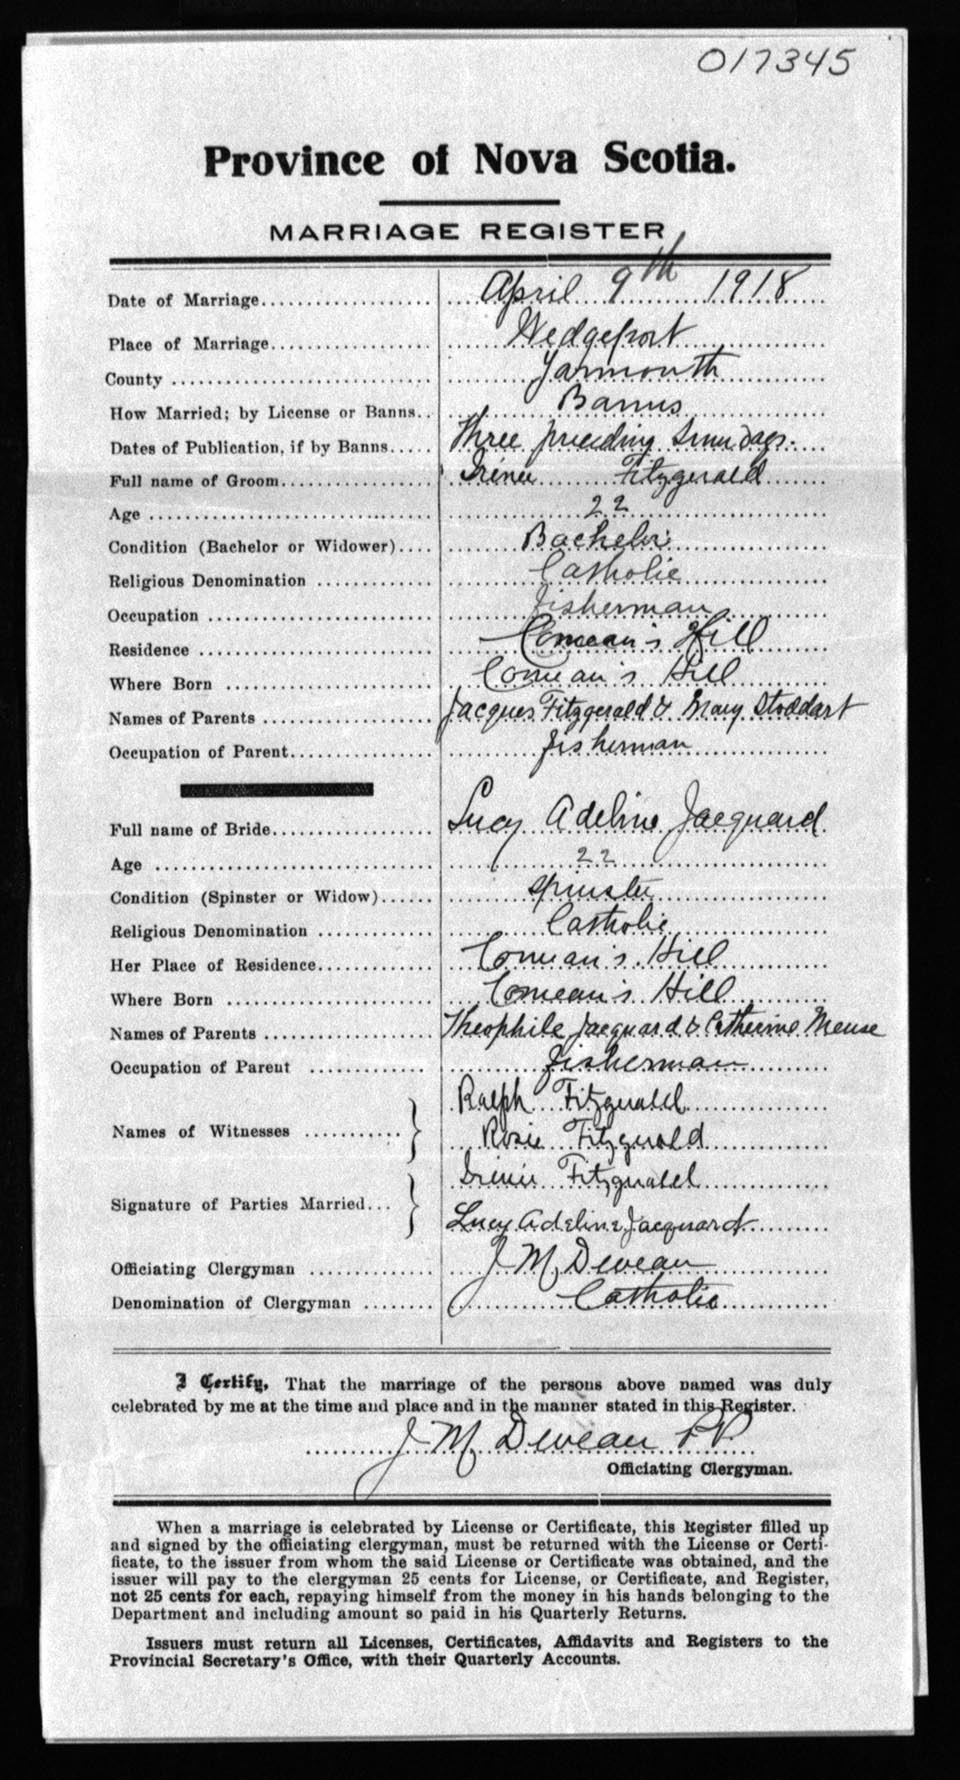 017345
Province of Nova Scotia.
MARRIAGE REGISTER
Date of Marriage.................... April 9th 1918
Place of Marriage................... Wedgeport
County .............................. Yarmouth
How Married; by License or Banns.. Banns
Dates of Publication, if by Banns..... Three preceding Sundays.
Full name of Groom.................. Irénée Fitzgerald
Age ................................ 22
Condition (Bachelor or Widower).... Bachelor
Religious Denomination ............ Catholic
Occupation ........................ fisherman
Residence ......................... Comeau's Hill
Where Born ........................ Comeau's Hill
Names of Parents .................. Jacques Fitzgerald & Mary Stoddart
Occupation of Parent............... fisherman
Full name of Bride................. Lucy Adeline Jacquard
Age ............................... 22
Condition (Spinster or Widow)...... Spinster
Religious Denomination ............ Catholic
Her Place of Residence............. Comeau's Hill
Where Born ........................ Comeau's Hill
Names of Parents .................. Theophile Jacquard & Catherine Meuse
Occupation of Parent ............. fisherman
Ralph Fitzgerald
Names of Witnesses ........... Rosie Fitzgerald
Irénée Fitzgerald
Signature of Parties Married...
Lucy Adeline Jacquard
Officiating Clergyman ............. J M Deveau
Denomination of Clergyman ........ Catholic
I Certify, That the marriage of the persons above named was duly
celebrated by me at the time and place and in the manner stated in this Register.
J M Deveau P P
Officiating Clergyman.
When a marriage is celebrated by License or Certificate, this Register filled up
and signed by the officiating clergyman, must be returned with the License or Certi-
ficate, to the issuer from whom the said License or Certificate was obtained, and the
issuer will pay to the clergyman 25 cents for License, or Certificate, and Register,
not 25 cents for each, repaying himself from the money in his hands belonging to the
Department and including amount so paid in his Quarterly Returns.
Issuers must return all Licenses, Certificates, Affidavits and Registers to the
Provincial Secretary's Office, with their Quarterly Accounts.